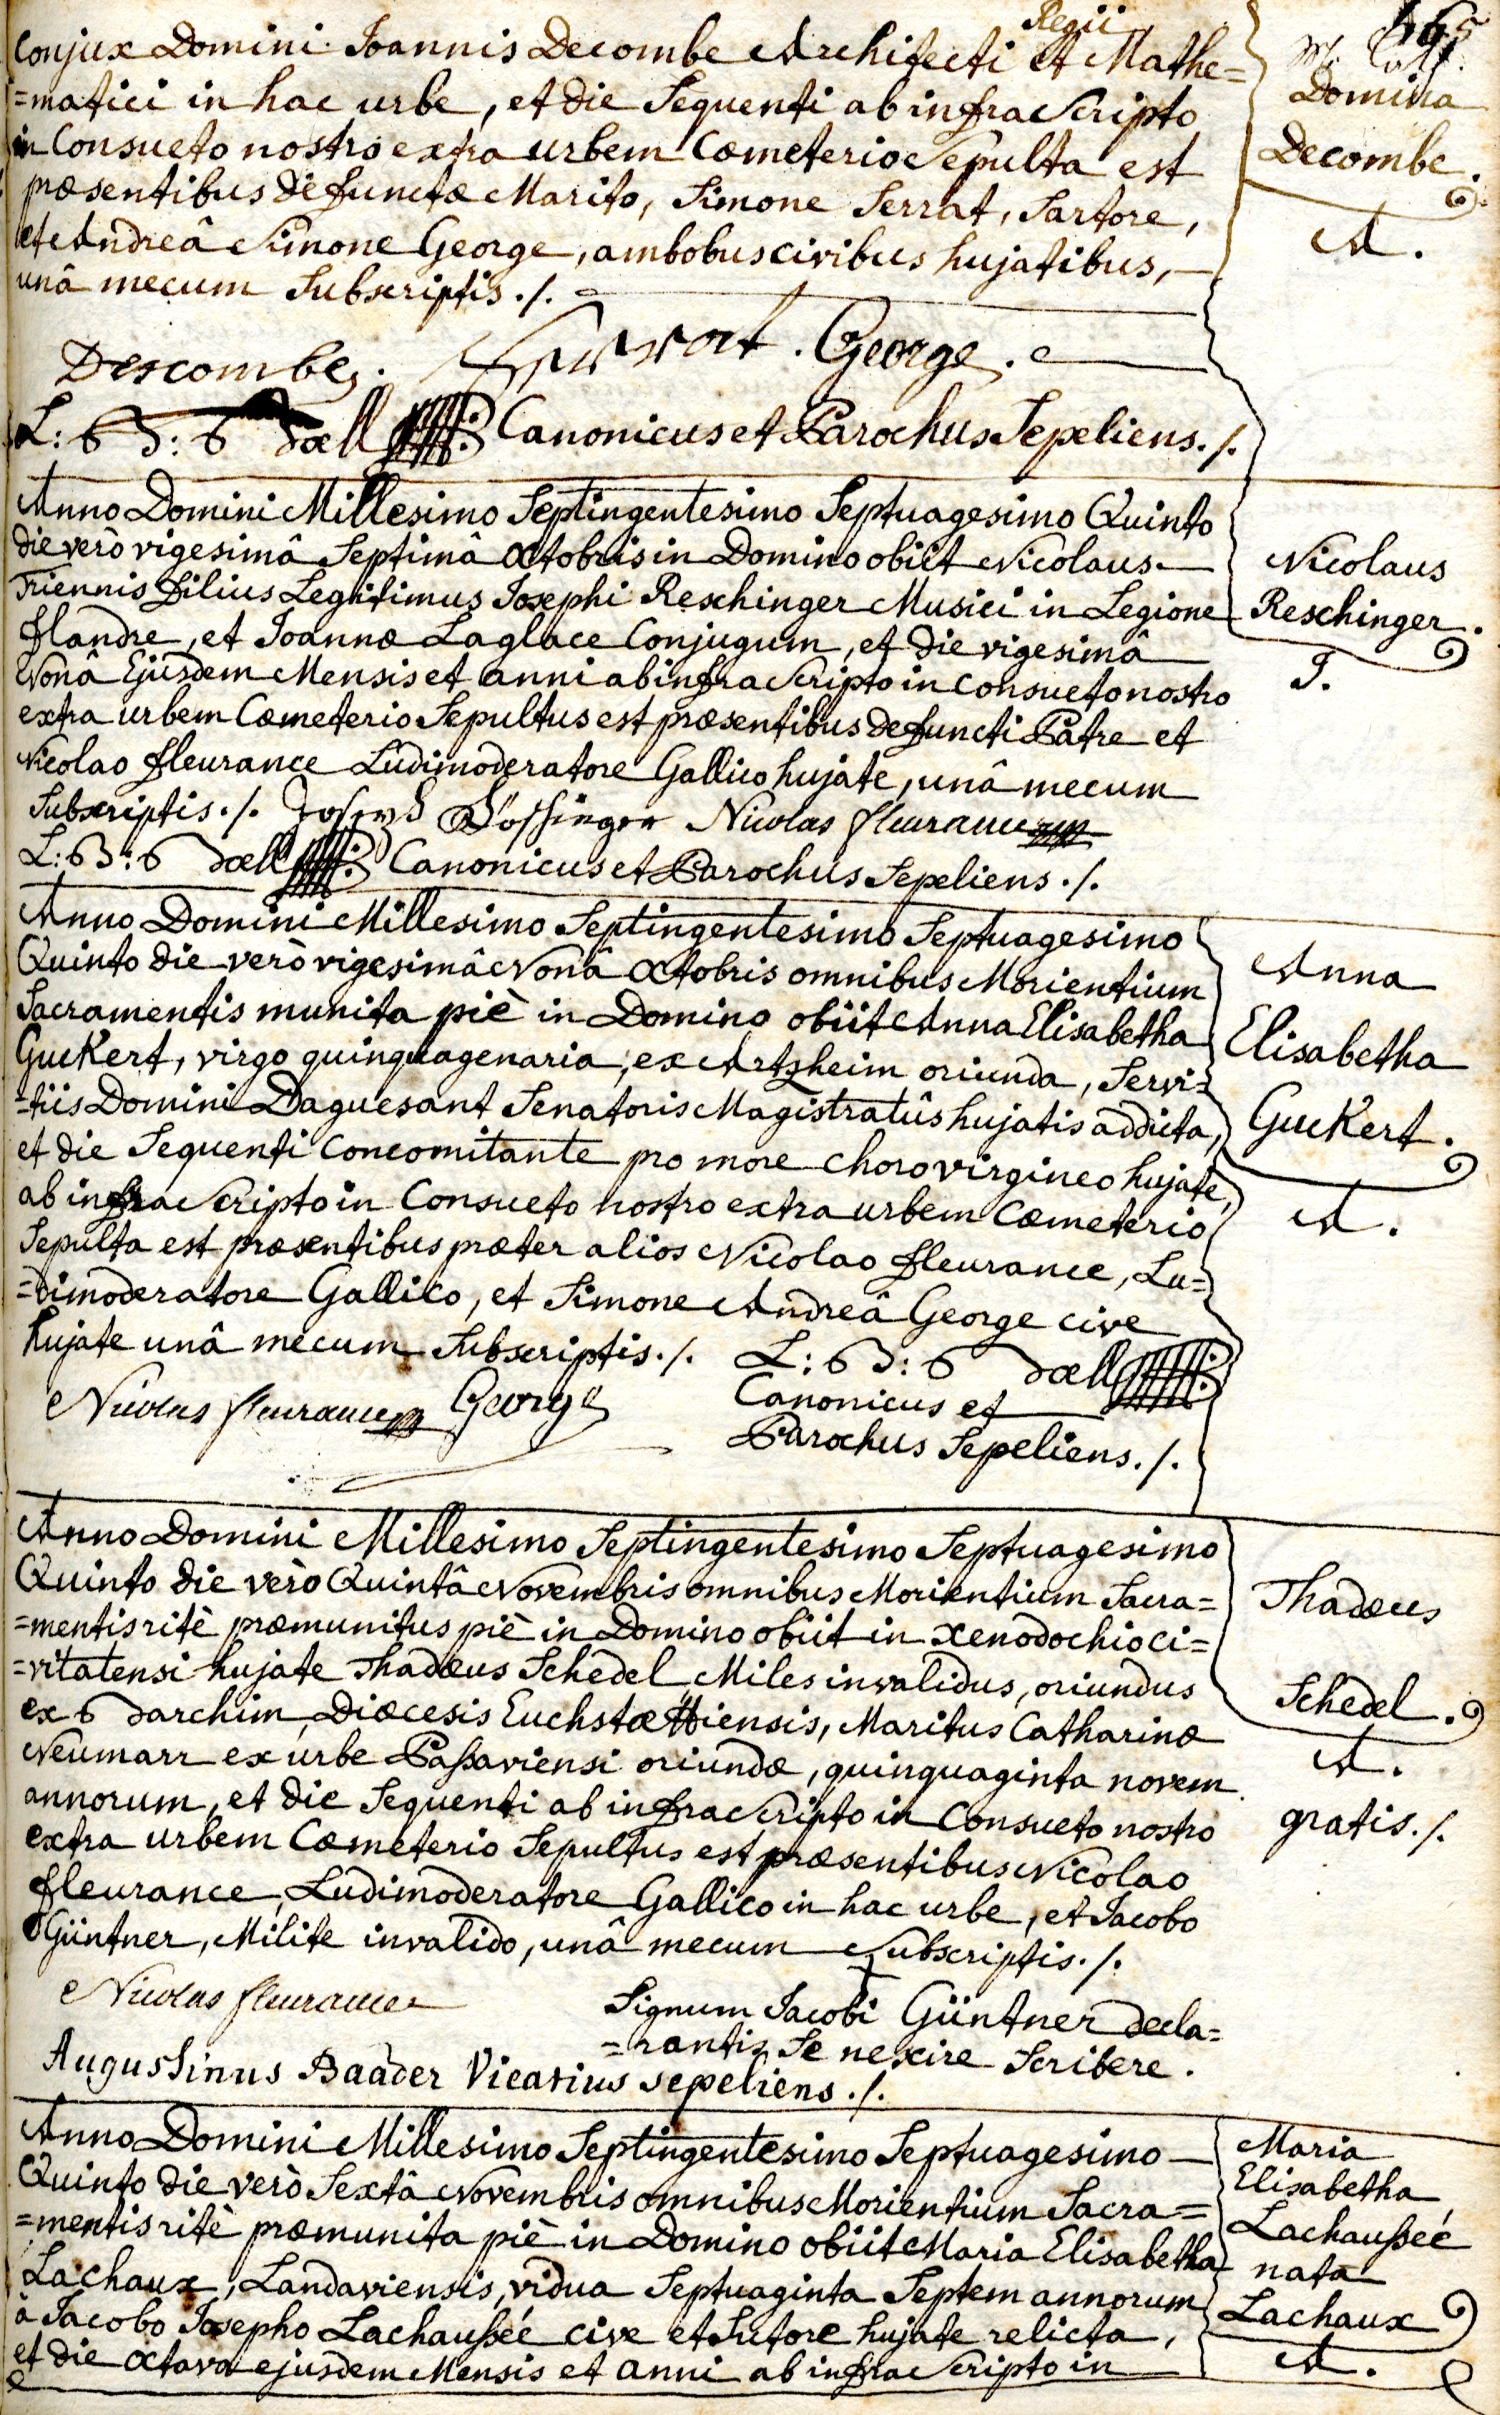 465
Regii
Conjux Domini Joannis Decombe Architecti et Mathe=
=matici in hac urbe, et die Sequenti ab infra Scripto
in Consueto nostro extra urbem Cœmeterio Sepulta est
præsentibus defunctæ Marito, Simone Serrat, Sartore,
et Andreâ Simone George, ambobus civibus hujatibus,
unâ mecum Subscriptis ./.
Domina
Decombe.
A.
Descombes. Serrat. George.
Canonicus et Parochus Sepeliens ./.
Anno Domini Millesimo Septingentesimo Septuagesimo Quinto
die verò vigesimâ Septimâ Octobris in Domino obiit Nicolaus
Triennis Filius Legitimus Josephi Reschinger Musici in Legione
flandre, et Joannæ Laglace Conjugum, et die vigesimâ
Nonâ Ejusdem Mensis et anni ab infra Scripto in Consueto nostro
extra urbem Cœmeterio Sepultus est præsentibus defuncti Patre et
Nicolao fleurance Ludimoderatore Gallico hujate, unâ mecum
Subscriptis ./. Joseph Nicolas fleurance
Canonicus et Parochus Sepeliens ./.
Nicolaus
Reschinger.
J.
Anno Domini Millesimo Septingentesimo Septuagesimo
Quinto die verò vigesimâ Nonâ Octobris omnibus Morientium
Sacramentis munita piè in Domino obiit Anna Elisabetha
GucKert, virgo quinquagenaria, ex Artzheim oriunda, Servi=
=tiis Domini Daguesant Senatoris Magistratûs hujatis addicta,
et die Sequenti Concomitante pro more choro virgineo hujate,
ab infra Scripto in Consueto nostro extra urbem Cœmeterio
Sepulta est præsentibus præter alios Nicolao fleurance, Lu=
=dimoderatore Gallico, et Simone Andreâ George cive
hujate unâ mecum Subscriptis ./.
Nicolas fleurance George
Canonicus et
Parochus Sepeliens ./.
Anna
Elisabetha
GucKert.
A.
Anno Domini Millesimo Septingentesimo Septuagesimo
Quinto die verò Quintâ Novembris omnibus Morientium Sacra=
=mentis ritè præmunitus piè in Domino obiit in xenodochio ci=
=vitatensi hujate Thadæus Schedel Miles invalidus, oriundus
ex darchim, Diœcesis Euchstættiensis, Maritus Catharinæ
Neumarr ex urbe Passaviensi oriundæ, quinquaginta novem
annorum, et die Sequenti ab infra Scripto in Consueto nostro
extra urbem Cœmeterio Sepultus est præsentibus Nicolao
fleurance, Ludimoderatore Gallico in hac urbe, et Jacobo
Güntner, Milite invalido, unâ mecum Subscriptis ./.
Thadæus
Schedel.
A.
gratis ./.
Nicolas fleurance
Signum Jacobi Güntner decla=
=rantis Se nescire Scribere.
Augustinus Baader Vicarius sepeliens ./.
Anno Domini Millesimo Septingentesimo Septuagesimo
Quinto die verò Sextâ Novembris omnibus Morientium Sacra=
=mentis ritè præmunita piè in Domino obiit Maria Elisabetha
Lachaux, Landaviensis, vidua Septuaginta Septem annorum
à Jacobo Josepho Lachaussée cive et Sutore hujate relicta,
et die octava ejusdem Mensis et anni ab infra Scripto in
Maria
Elisabetha
Lachausseé
nata
Lachaux
A.